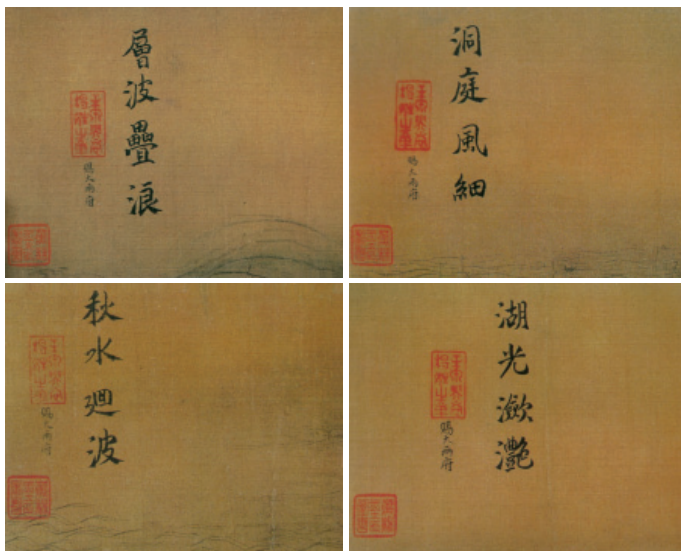 層波疊浪
賜大兩府
洞庭風細
賜大兩府
秋水廻波
賜大兩府
湖光瀲灩
賜大兩府